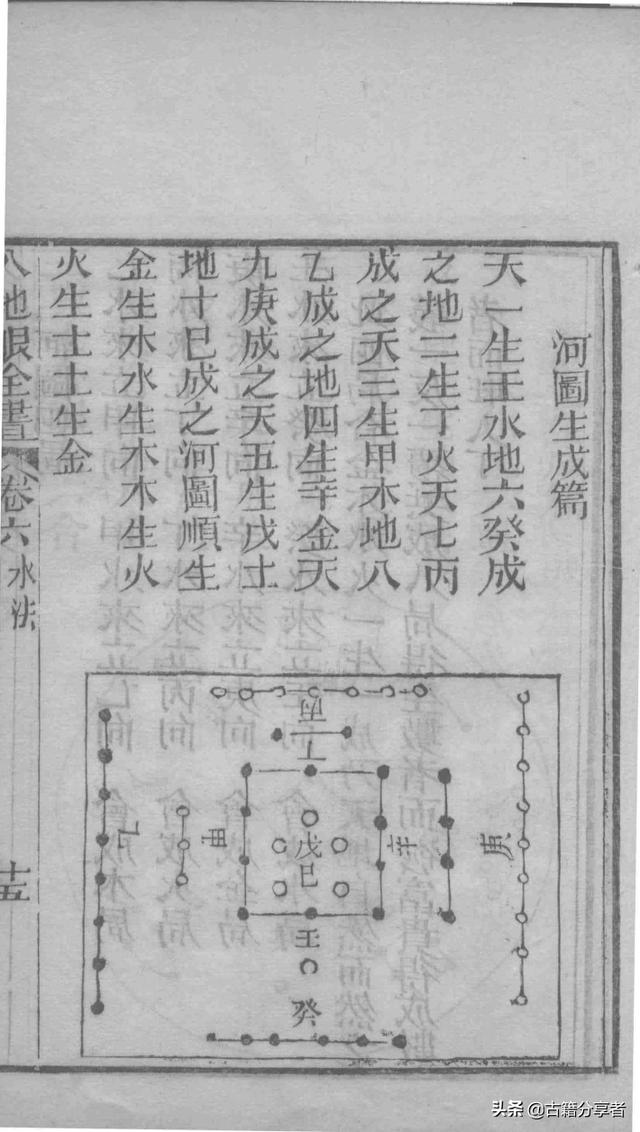 河圖生成篇
天一生壬水地六癸成
之地二生丁火天七丙
成之天三生甲木地八
乙成之地四生辛金天
九庚成之天五生戊土
地十巳成之河圖順生
金生水水生木木生火
火生土土生金
地眼全書
卷六
水法
十五
丙
丁
乙
甲
戊
巳
辛
庚
壬
癸
头条 @古籍分享者